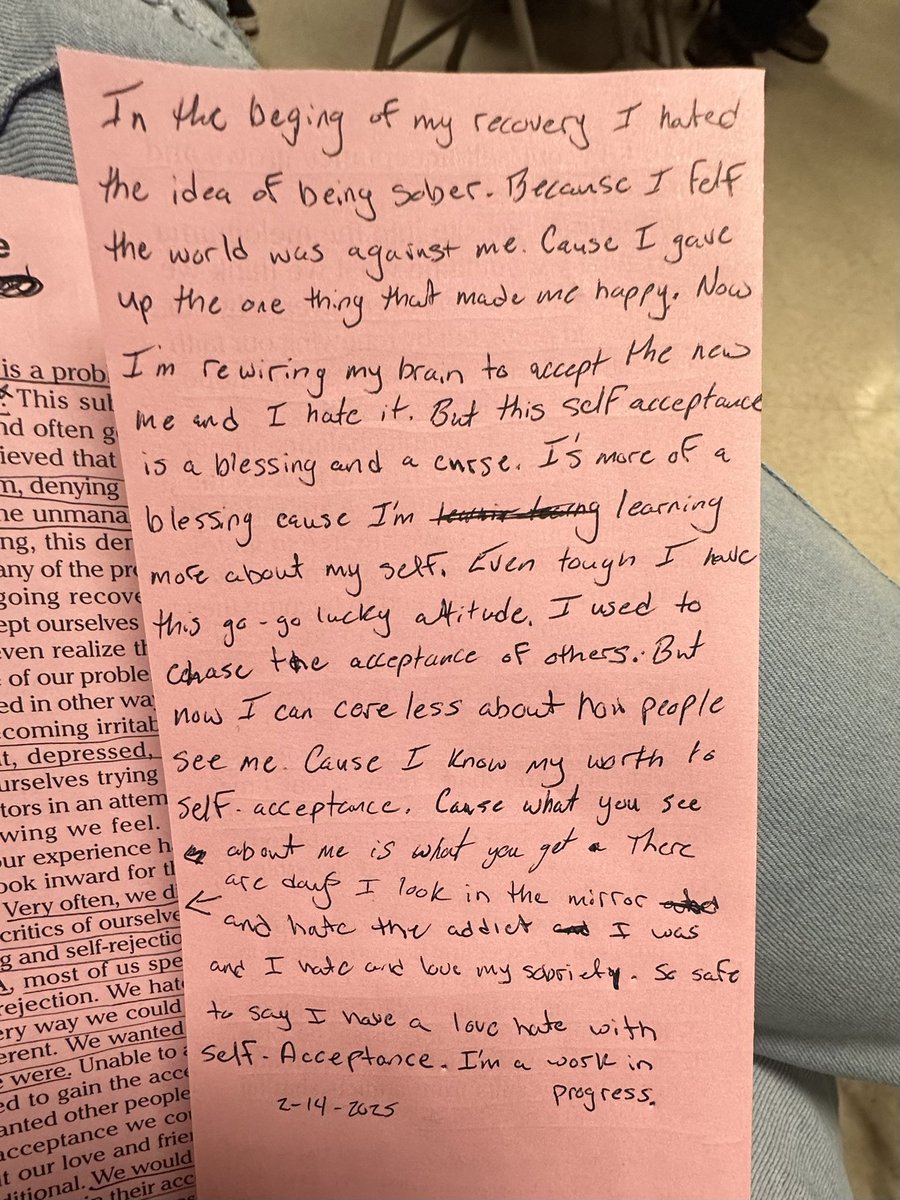 In the beging of my recovery I hated
the idea of being sober. Because I felt
the world was against me. Cause I gave
up the one thing that made me happy. Now
I'm rewiring my brain to accept the new
me and I hate it. But this self acceptance
is a blessing and a curse. I's more of a
blessing cause I'm learning
more about my self. Even tough I have
this go-go lucky attitude. I used to
chase the acceptance of others. But
now I can core less about how people
see me. Cause I know my worth to
self-acceptance. Cause what you see
about me is what you get. There
are days I look in the mirror
and hate the addict I was
and I hate and love my sobriety. So safe
to say I have a love hate with
self-Acceptance. I'm a work in
progress.
2-14-2025
e
is a prob
This sul
nd often g
ieved that
m, denying
ne unmana
ng, this der
any of the pr
going recove
ept ourselves
even realize th
of our proble
ed in other wa
coming irritab
t, depressed,
urselves trying
tors in an attem
wing we feel.
our experience h
ook inward for th
Very often, we d
critics of ourselve
g and self-rejectio
A, most of us spe
rejection. We hat
ery way we could
erent. We wanted
e were. Unable to
ed to gain the acce
anted other people
acceptance we co
t our love and frie
ditional. We would
their acc